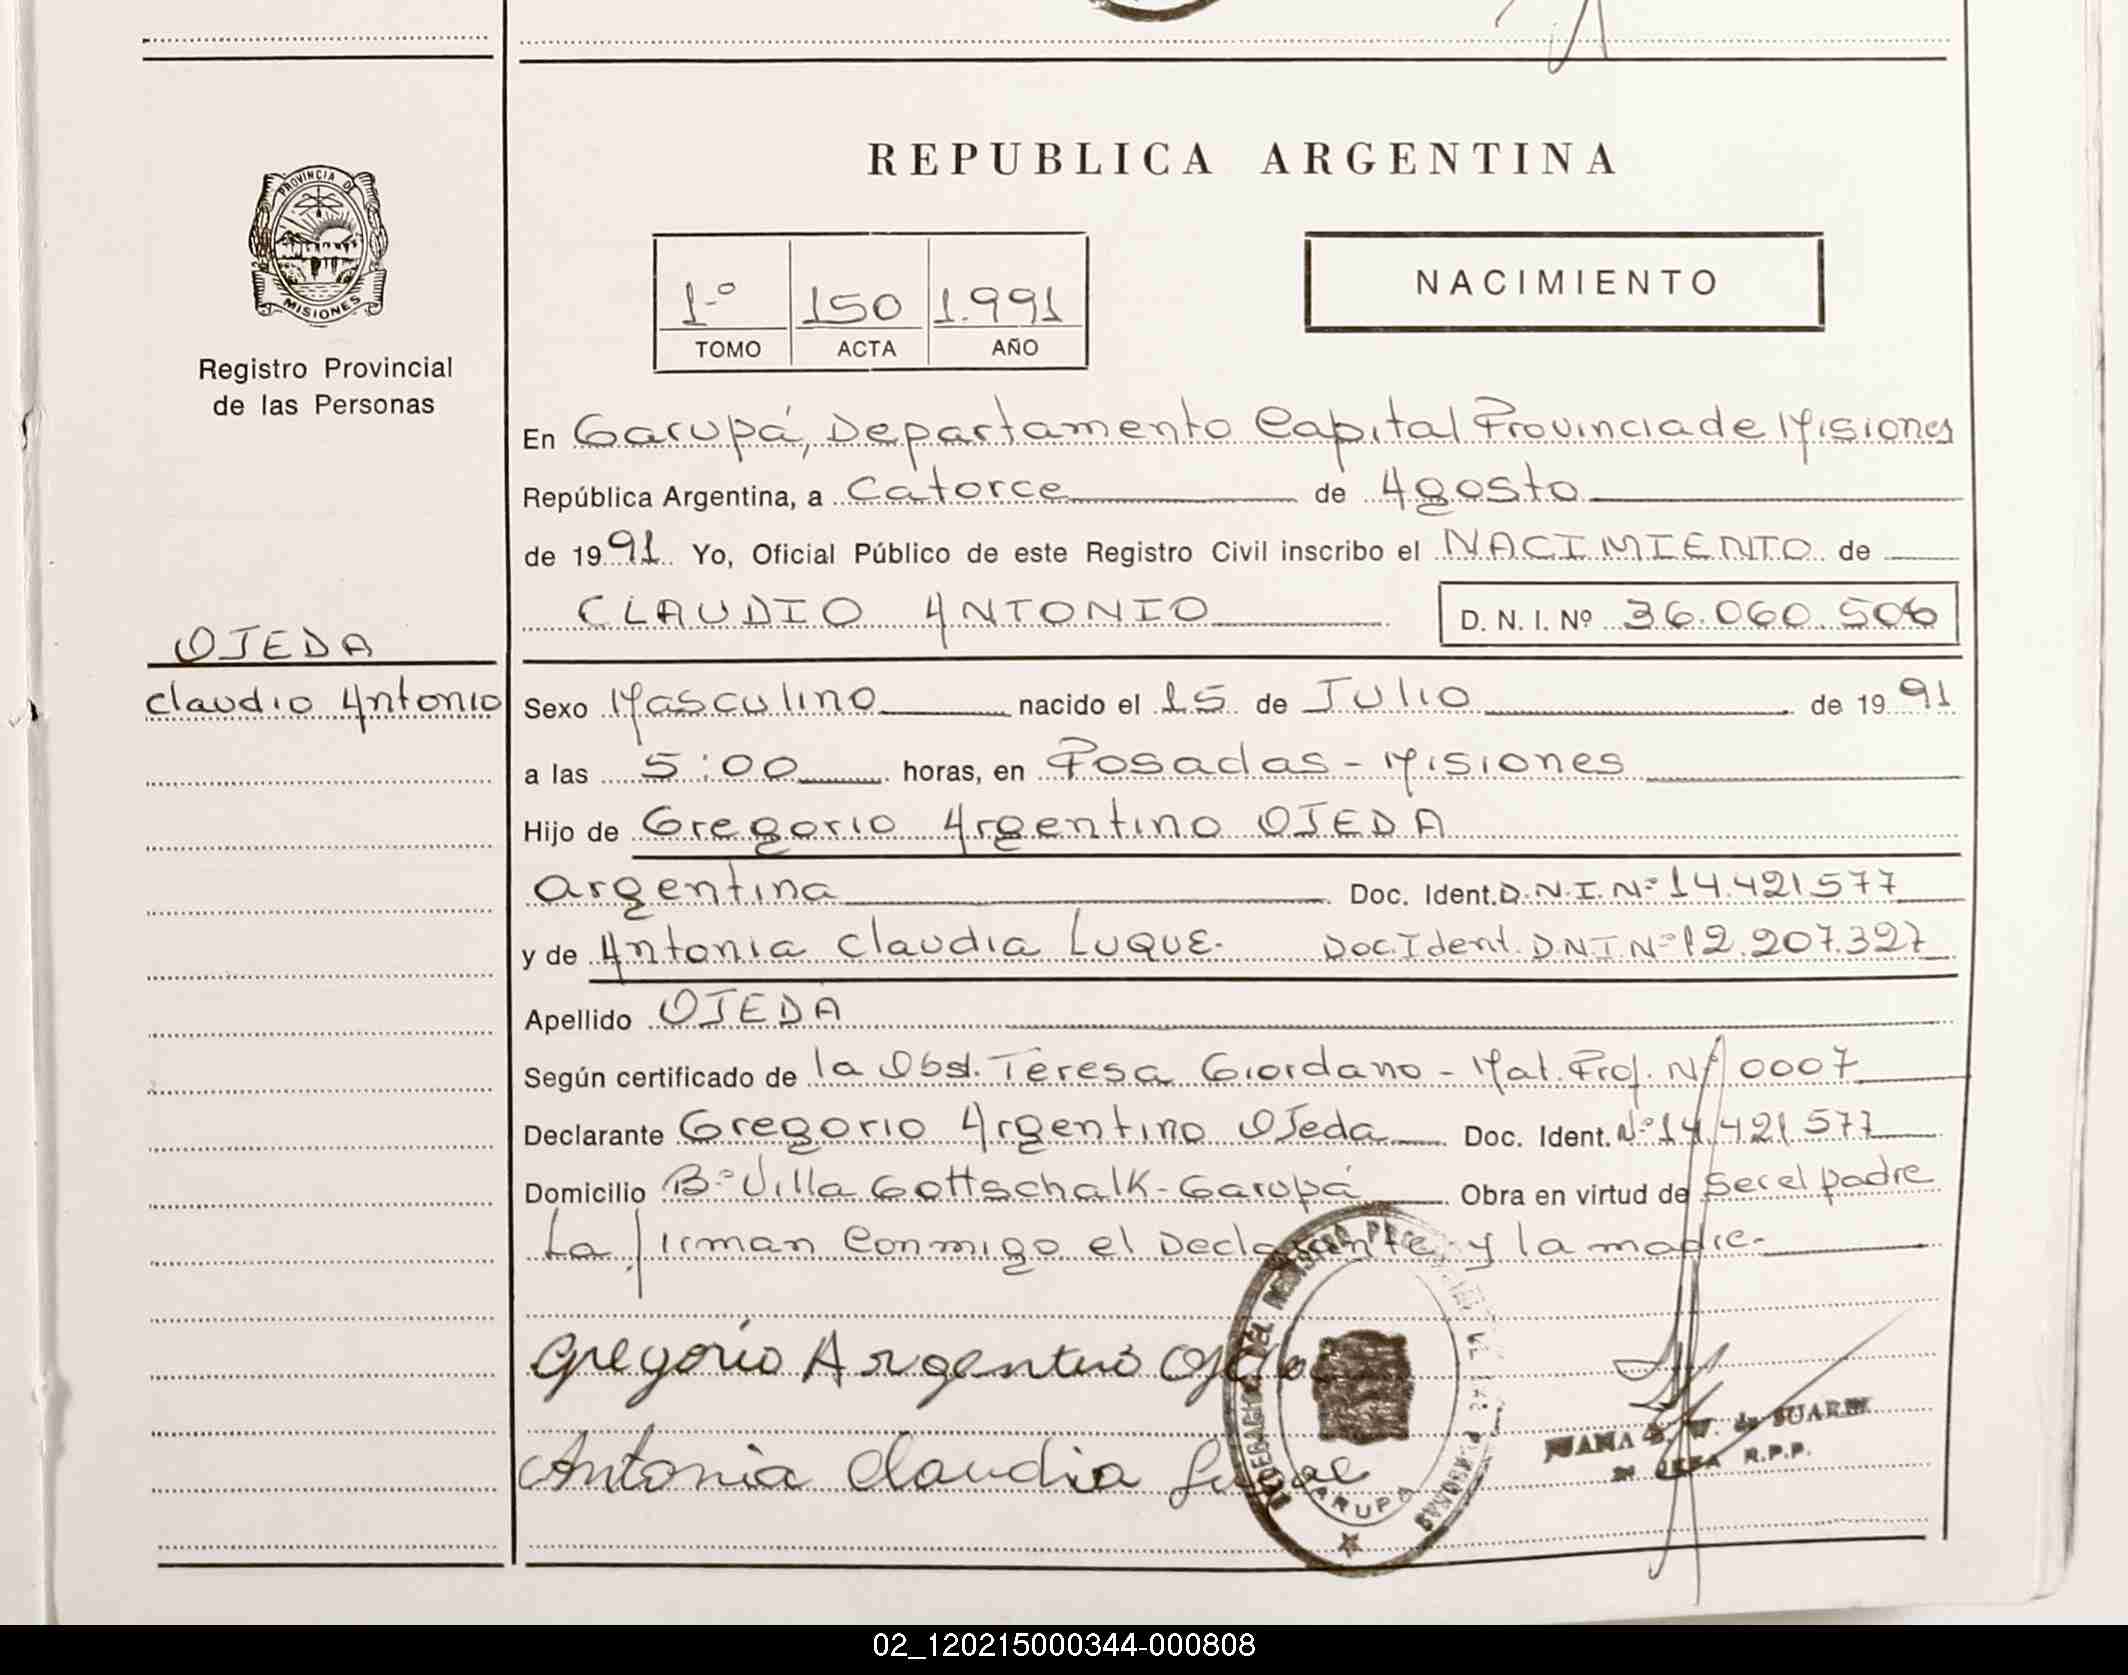 REPUBLICA ARGENTINA
PROVINCIA DE
MISIONES
Registro Provincial
de las Personas
1º 150 1.991
TOMO ACTA AÑO
NACIMIENTO
En Garupá, Departamento Capital Provincia de Misiones
República Argentina, a Catorce de Agosto
de 1991 Yo, Oficial Público de este Registro Civil inscribo el NACIMIENTO de
CLAUDIO ANTONIO D. N. I. Nº 36.060.506
OJEDA
Claudio Antonio
Sexo Masculino nacido el 15 de Julio de 1991
a las 5:00 horas, en Posadas - Misiones
Hijo de Gregorio Argentino OJEDA
argentina Doc. Ident. D.N.I. Nº 14.421577
y de Antonia Claudia LUQUE. Doc. Ident. DNI Nº 12.207.327
Apellido OJEDA
Según certificado de la Obst. Teresa Giordano - Mat. Prof. Nº 0007
Declarante Gregorio Argentino Ojeda Doc. Ident. Nº 14.421577
Domicilio Bº Villa Gottschalk - Garupá Obra en virtud de ser el padre
La firman conmigo el Declarante y la madre.
Gregorio Argentino Ojeda
Antonia Claudia Luque
DELEGACION DEL REGISTRO DE LAS PERSONAS
GARUPA
JUANA W. de SUAREZ
JEFA R.P.P.
02_120215000344-000808